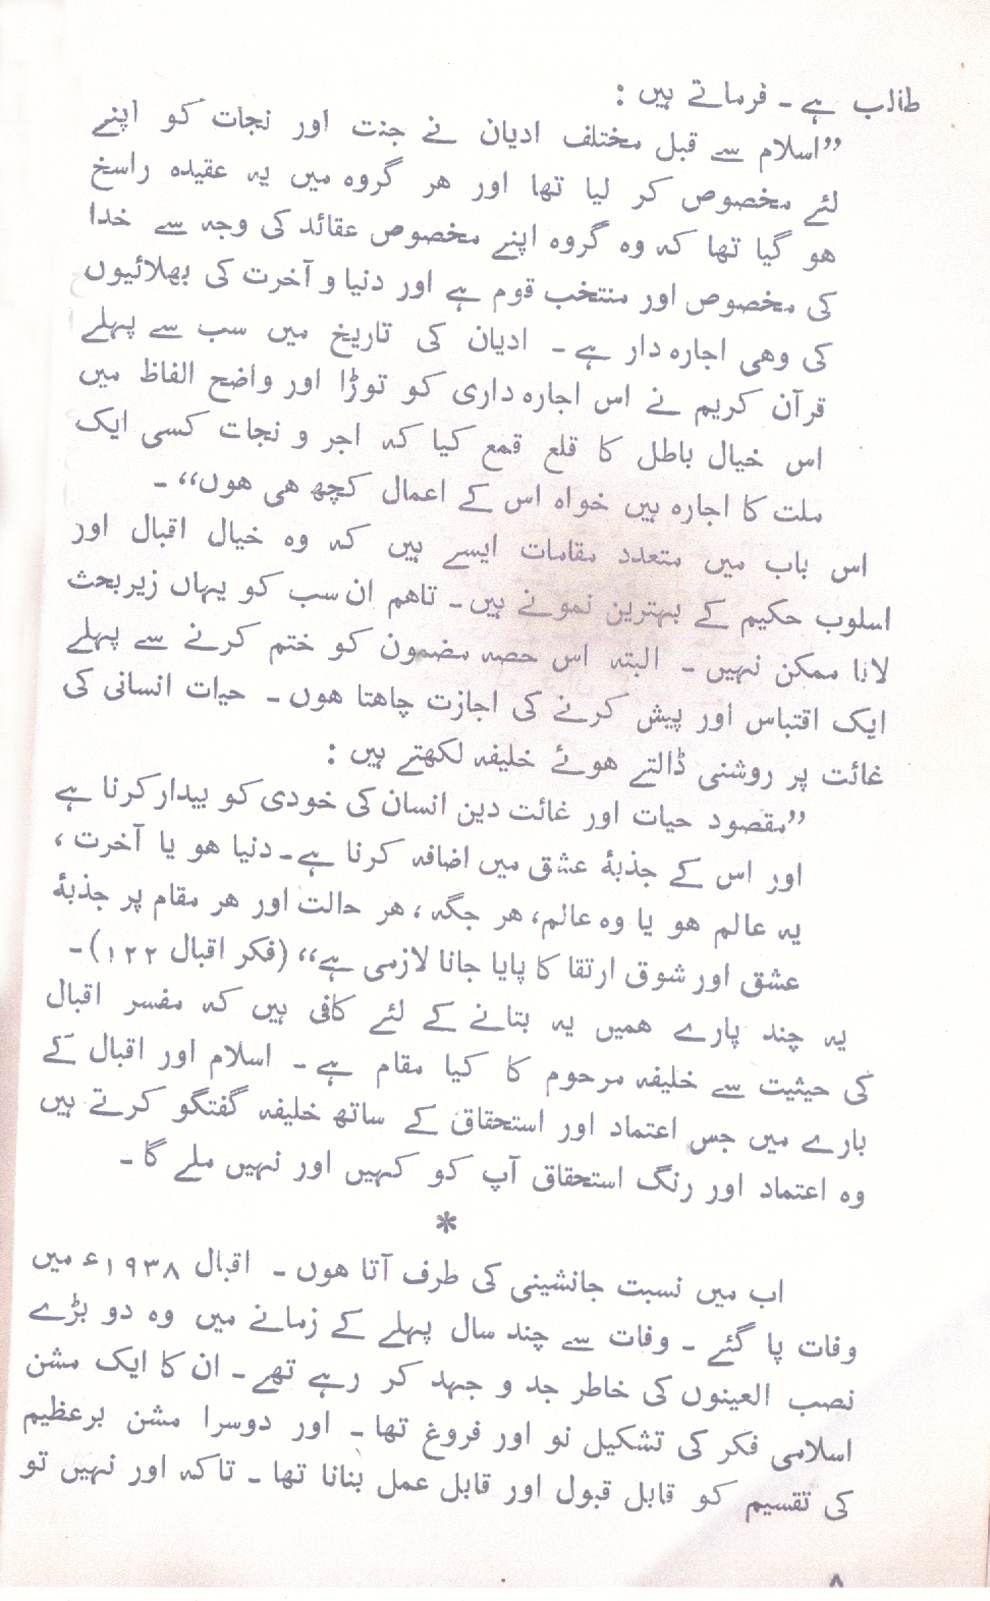 طالب ہے ۔ فرماتے ہیں :
”اسلام سے قبل مختلف ادیان نے جنت اور نجات کو اپنے
لئے مخصوص کر لیا تھا اور ھر گروہ میں یہ عقیدہ راسخ
ھو گیا تھا کہ وہ گروہ اپنے مخصوص عقائد کی وجہ سے خدا
کی مخصوص اور منتخب قوم ہے اور دنیا و آخرت کی بھلائیوں
کی وھی اجارہ دار ہے ۔ ادیان کی تاریخ میں سب سے پہلے
قرآن کریم نے اس اجارہ داری کو توڑا اور واضح الفاظ میں
اس خیال باطل کا قلع قمع کیا کہ اجر و نجات کسی ایک
ملت کا اجارہ ہیں خواہ اس کے اعمال کچھ ھی ھوں“ ۔
اس باب میں متعدد مقامات ایسے ہیں کہ وہ خیال اقبال اور
اسلوب حکیم کے بہترین نمونے ہیں ۔ تاھم ان سب کو یہاں زیربحث
لانا ممکن نہیں ۔ البتہ اس حصہ مضمون کو ختم کرنے سے پہلے
ایک اقتباس اور پیش کرنے کی اجازت چاھتا ھوں ۔ حیات انسانی کی
غائت پر روشنی ڈالتے ھوئے خلیفہ لکھتے ہیں :
”مقصود حیات اور غائت دین انسان کی خودی کو بیدار کرنا ہے
اور اس کے جذبۂ عشق میں اضافہ کرنا ہے ۔ دنیا ھو یا آخرت ،
یہ عالم ھو یا وہ عالم، ھر جگہ ، ھر حالت اور ھر مقام پر جذبۂ
عشق اور شوق ارتقا کا پایا جانا لازمی ہے“ (فکر اقبال ۱۲۲) ۔
یہ چند پارے ھمیں یہ بتانے کے لئے کافی ہیں کہ مفسر اقبال
کی حیثیت سے خلیفہ مرحوم کا کیا مقام ہے ۔ اسلام اور اقبال کے
بارے میں جس اعتماد اور استحقاق کے ساتھ خلیفہ گفتگو کرتے ہیں
وہ اعتماد اور رنگ استحقاق آپ کو کہیں اور نہیں ملے گا ۔
*
اب میں نسبت جانشینی کی طرف آتا ھوں ۔ اقبال ۱۹۳۸ء میں
وفات پا گئے ۔ وفات سے چند سال پہلے کے زمانے میں وہ دو بڑے
نصب العینوں کی خاطر جد و جہد کر رہے تھے ۔ ان کا ایک مشن
اسلامی فکر کی تشکیل نو اور فروغ تھا ۔ اور دوسرا مشن برعظیم
کی تقسیم کو قابل قبول اور قابل عمل بنانا تھا ۔ تاکہ اور نہیں تو
۸